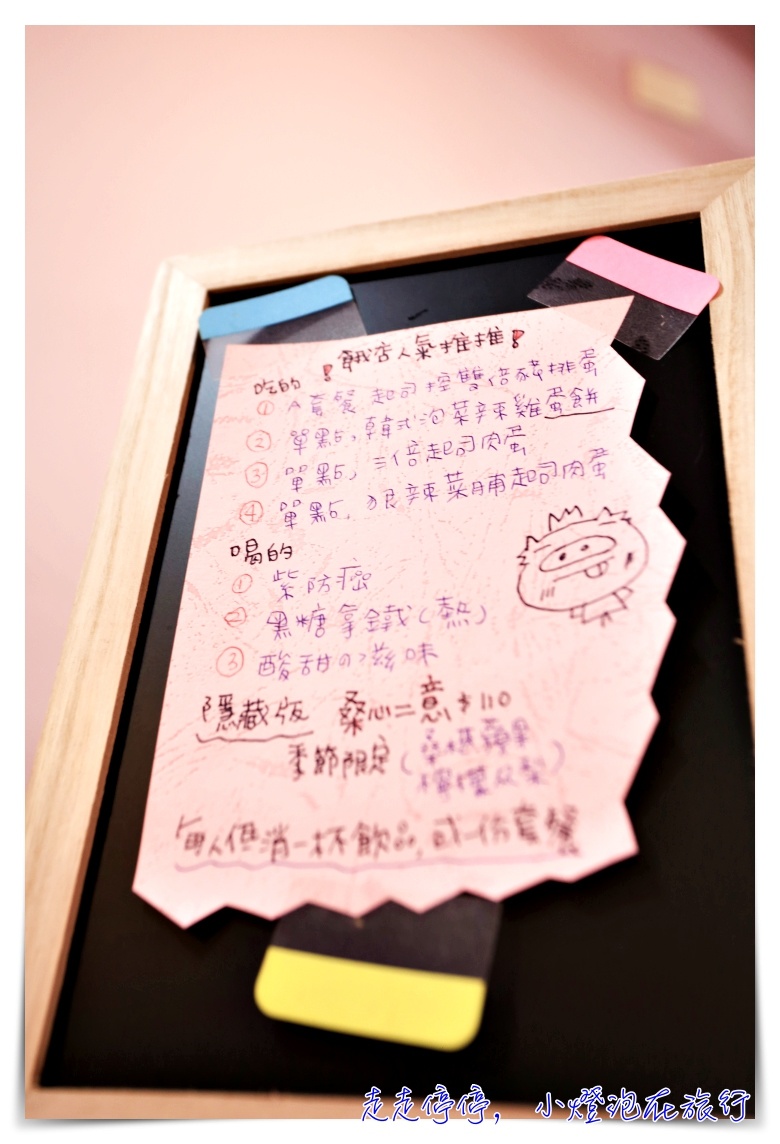 ! 餓店人氣推推 !
吃的
① A套餐 起司控雙倍豬排蛋
② 單點, 韓式泡菜辣雞蛋餅
③ 單點, 三倍起司肉蛋
④ 單點, 狠辣菜脯起司肉蛋
喝的
① 紫防癌
② 黑糖拿鐵(熱)
③ 酸甜の滋味
隱藏版 桑心二意 $110
季節限定(桑椹蘋果
檸檬水梨)
每人低消一杯飲品, 或一份套餐
走走停停, 小燈泡在旅行